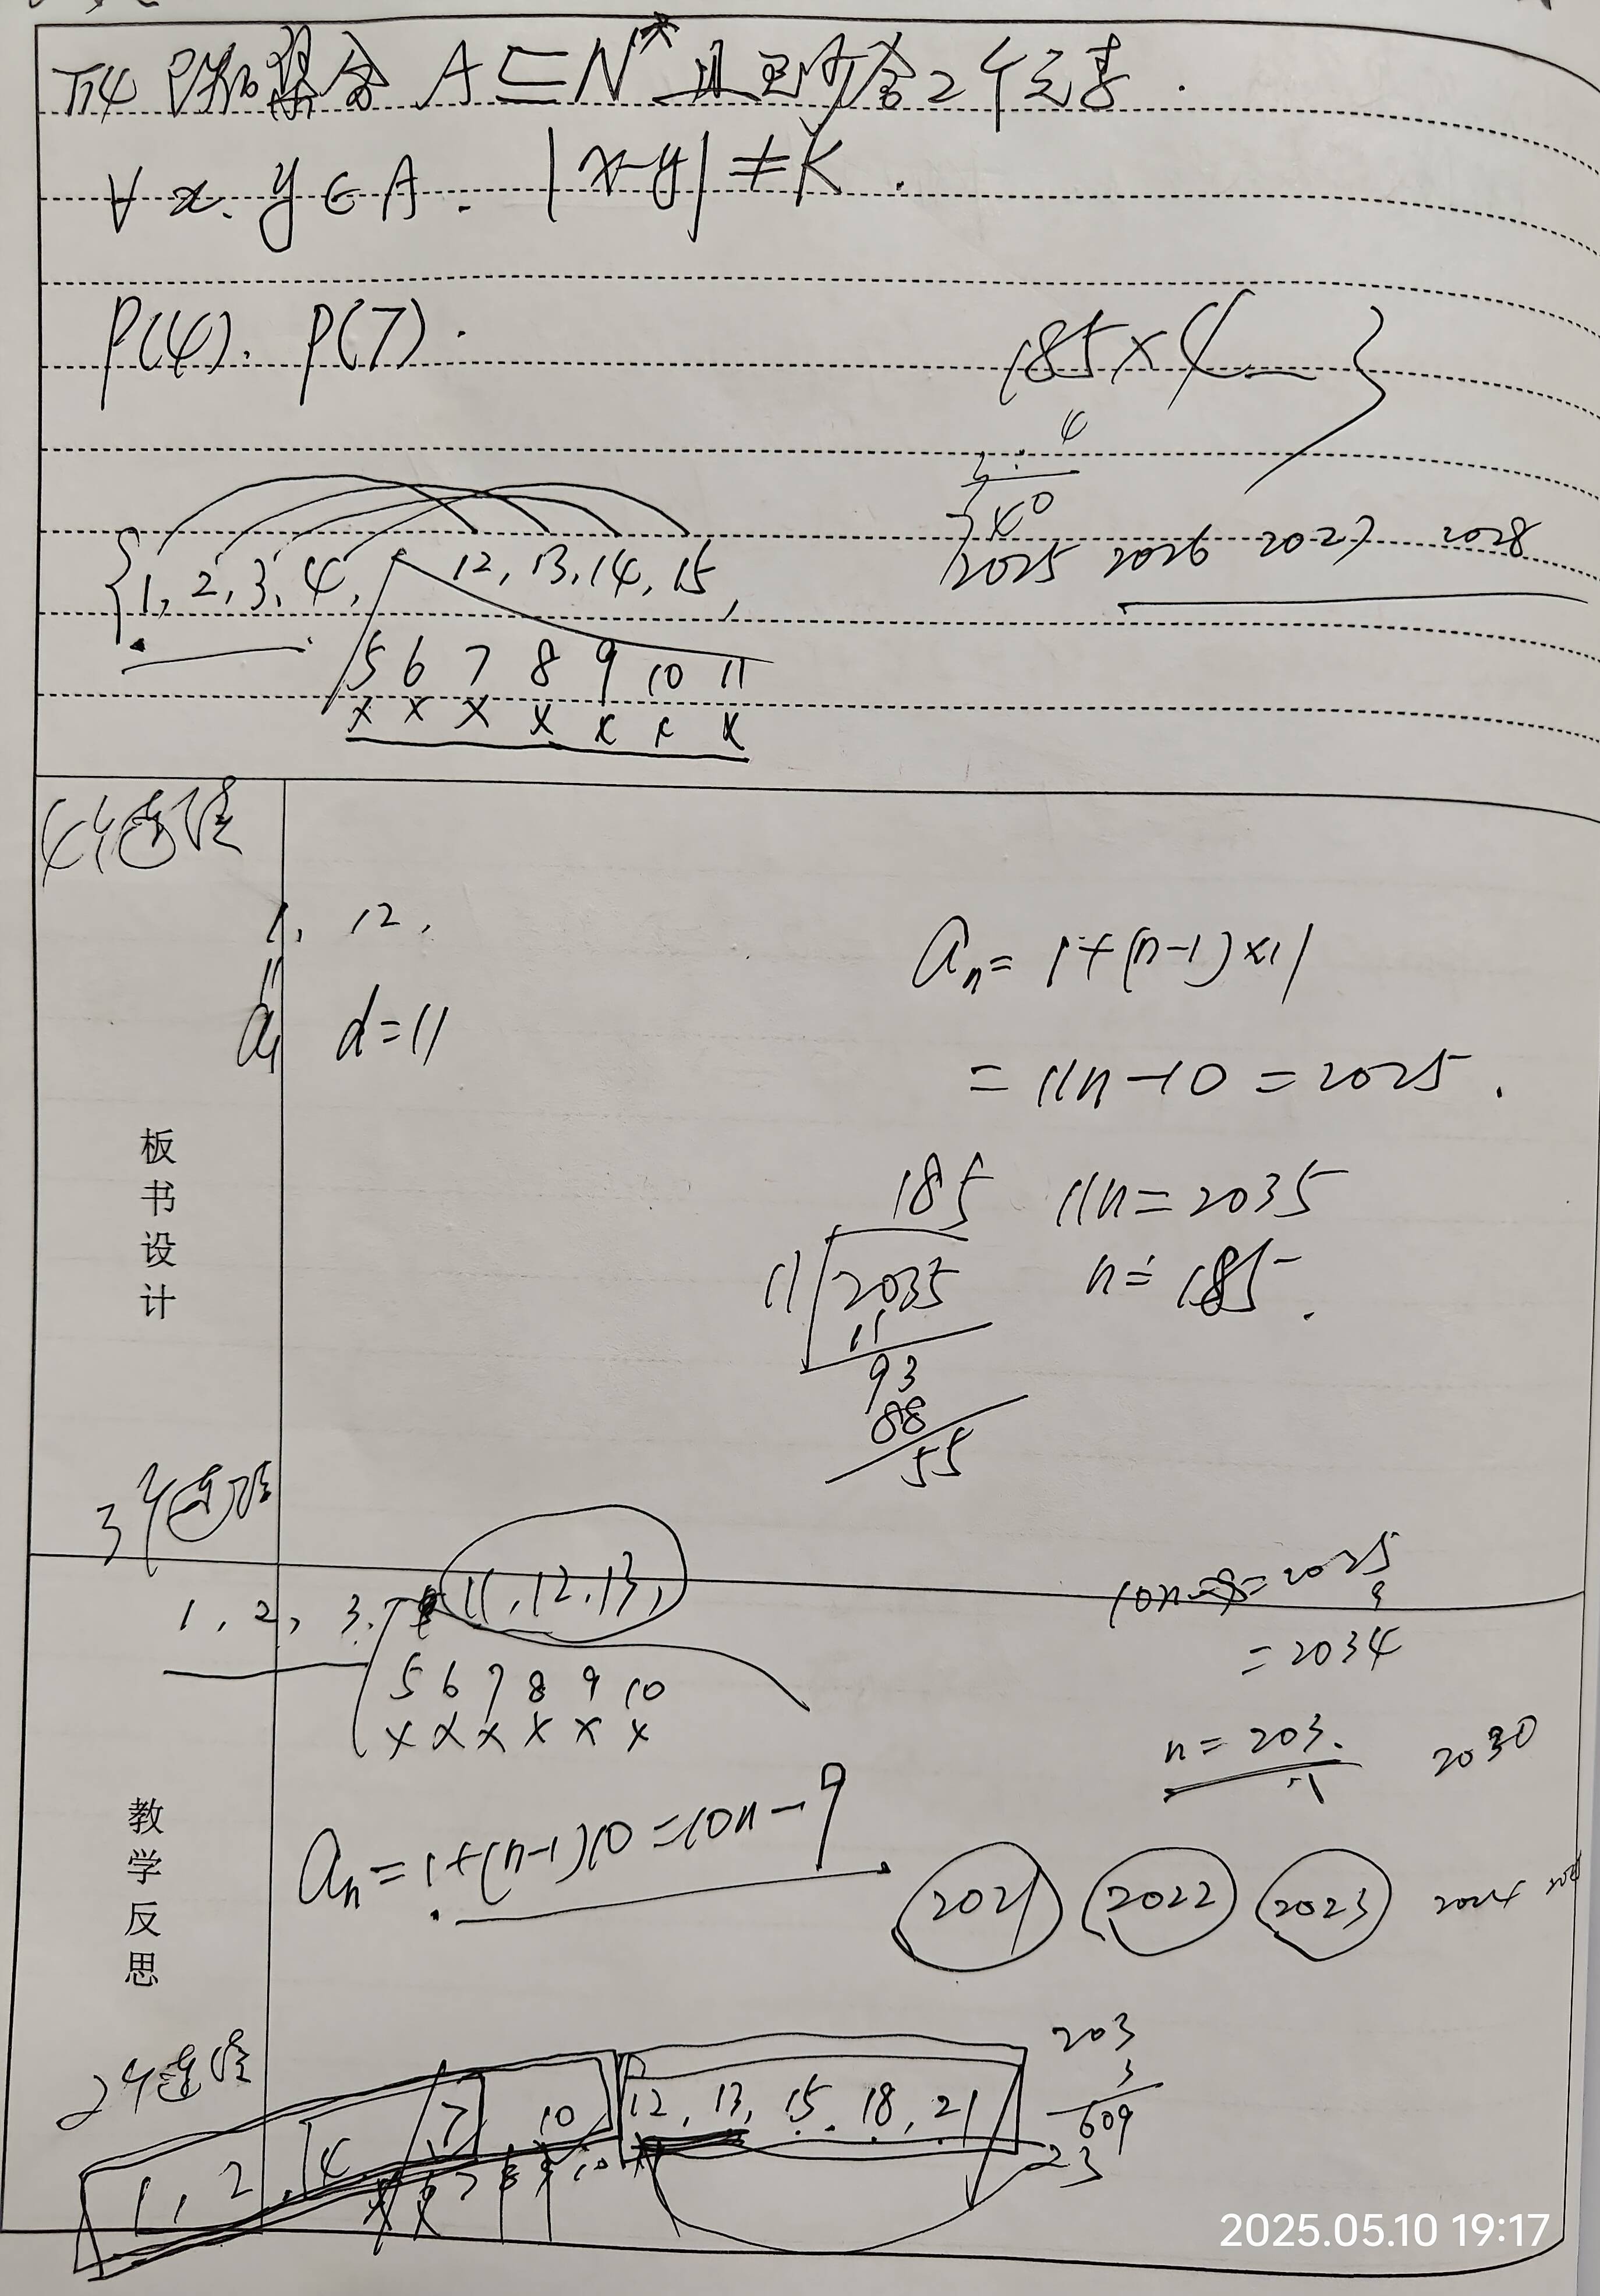 T14 已知集合 A⊆N* 且至少含2个元素.
∀ x. y∈A. |x-y|≠K.
P(4). P(7).
185×4
4
740
2025 2026 2027 2028
{1, 2, 3, 4, 12, 13, 14, 15,
5 6 7 8 9 10 11
× × × × × × ×
4个连续
1, 12,
a₁ d=11
aₙ= 1+(n-1)×11
= 11n-10=2025.
11n=2035
n=185.
185
11 2035
11
93
88
55
板书设计
3个连续
1, 2, 3. 11, 12, 13,
5 6 7 8 9 10
× × × × × ×
10n-9=2025
9
=2034
n=203. 2030
aₙ=1+(n-1)10=10n-9
2021 2022 2023 2024
教学反思
2个连续
203
3
609
1, 2, 4 7 10 12, 13, 15, 18, 21
23
2025.05.10 19:17